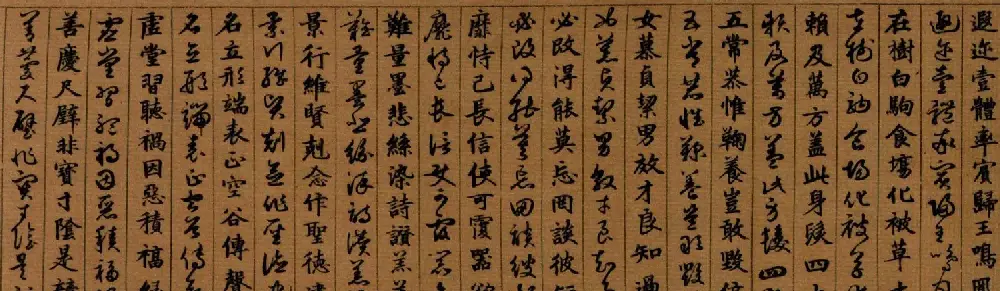 遐迩壹體率賓歸王鳴
遐迩壹體率賓歸王鳴
在樹白駒食場化被草
在樹白駒食場化被草
賴及萬方蓋此身髮四大
賴及萬方蓋此身髮四
五常恭惟鞠養豈敢毀傷
五常恭惟鞠養豈敢毀
女慕貞絜男效才良知過
女慕貞絜男效才良知
必改得能莫忘罔談彼短
必改得能莫忘罔談彼
靡恃己長信使可覆器欲
靡恃己長信使可覆器
難量墨悲絲染詩讚羔
難量墨悲絲染詩讚羔
景行維賢剋念作聖德建
景行維賢剋念作聖德
名立形端表正空谷傳聲
名立形端表正空谷傳
虛堂習聽禍因惡積福緣
虛堂習聽禍因惡積福
善慶尺璧非寶寸陰是競
善慶尺璧非寶寸陰是